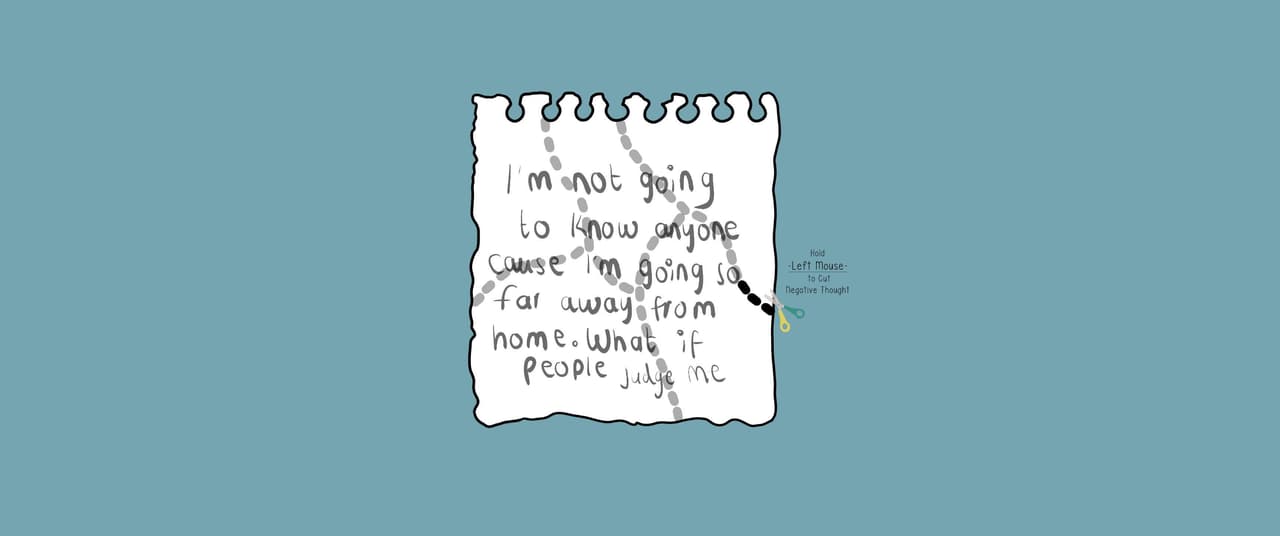 I'm not going
to know anyone
cause I'm going so
far away from
home. What if
people judge me
Hold
-Left Mouse-
to Cut
Negative Thought